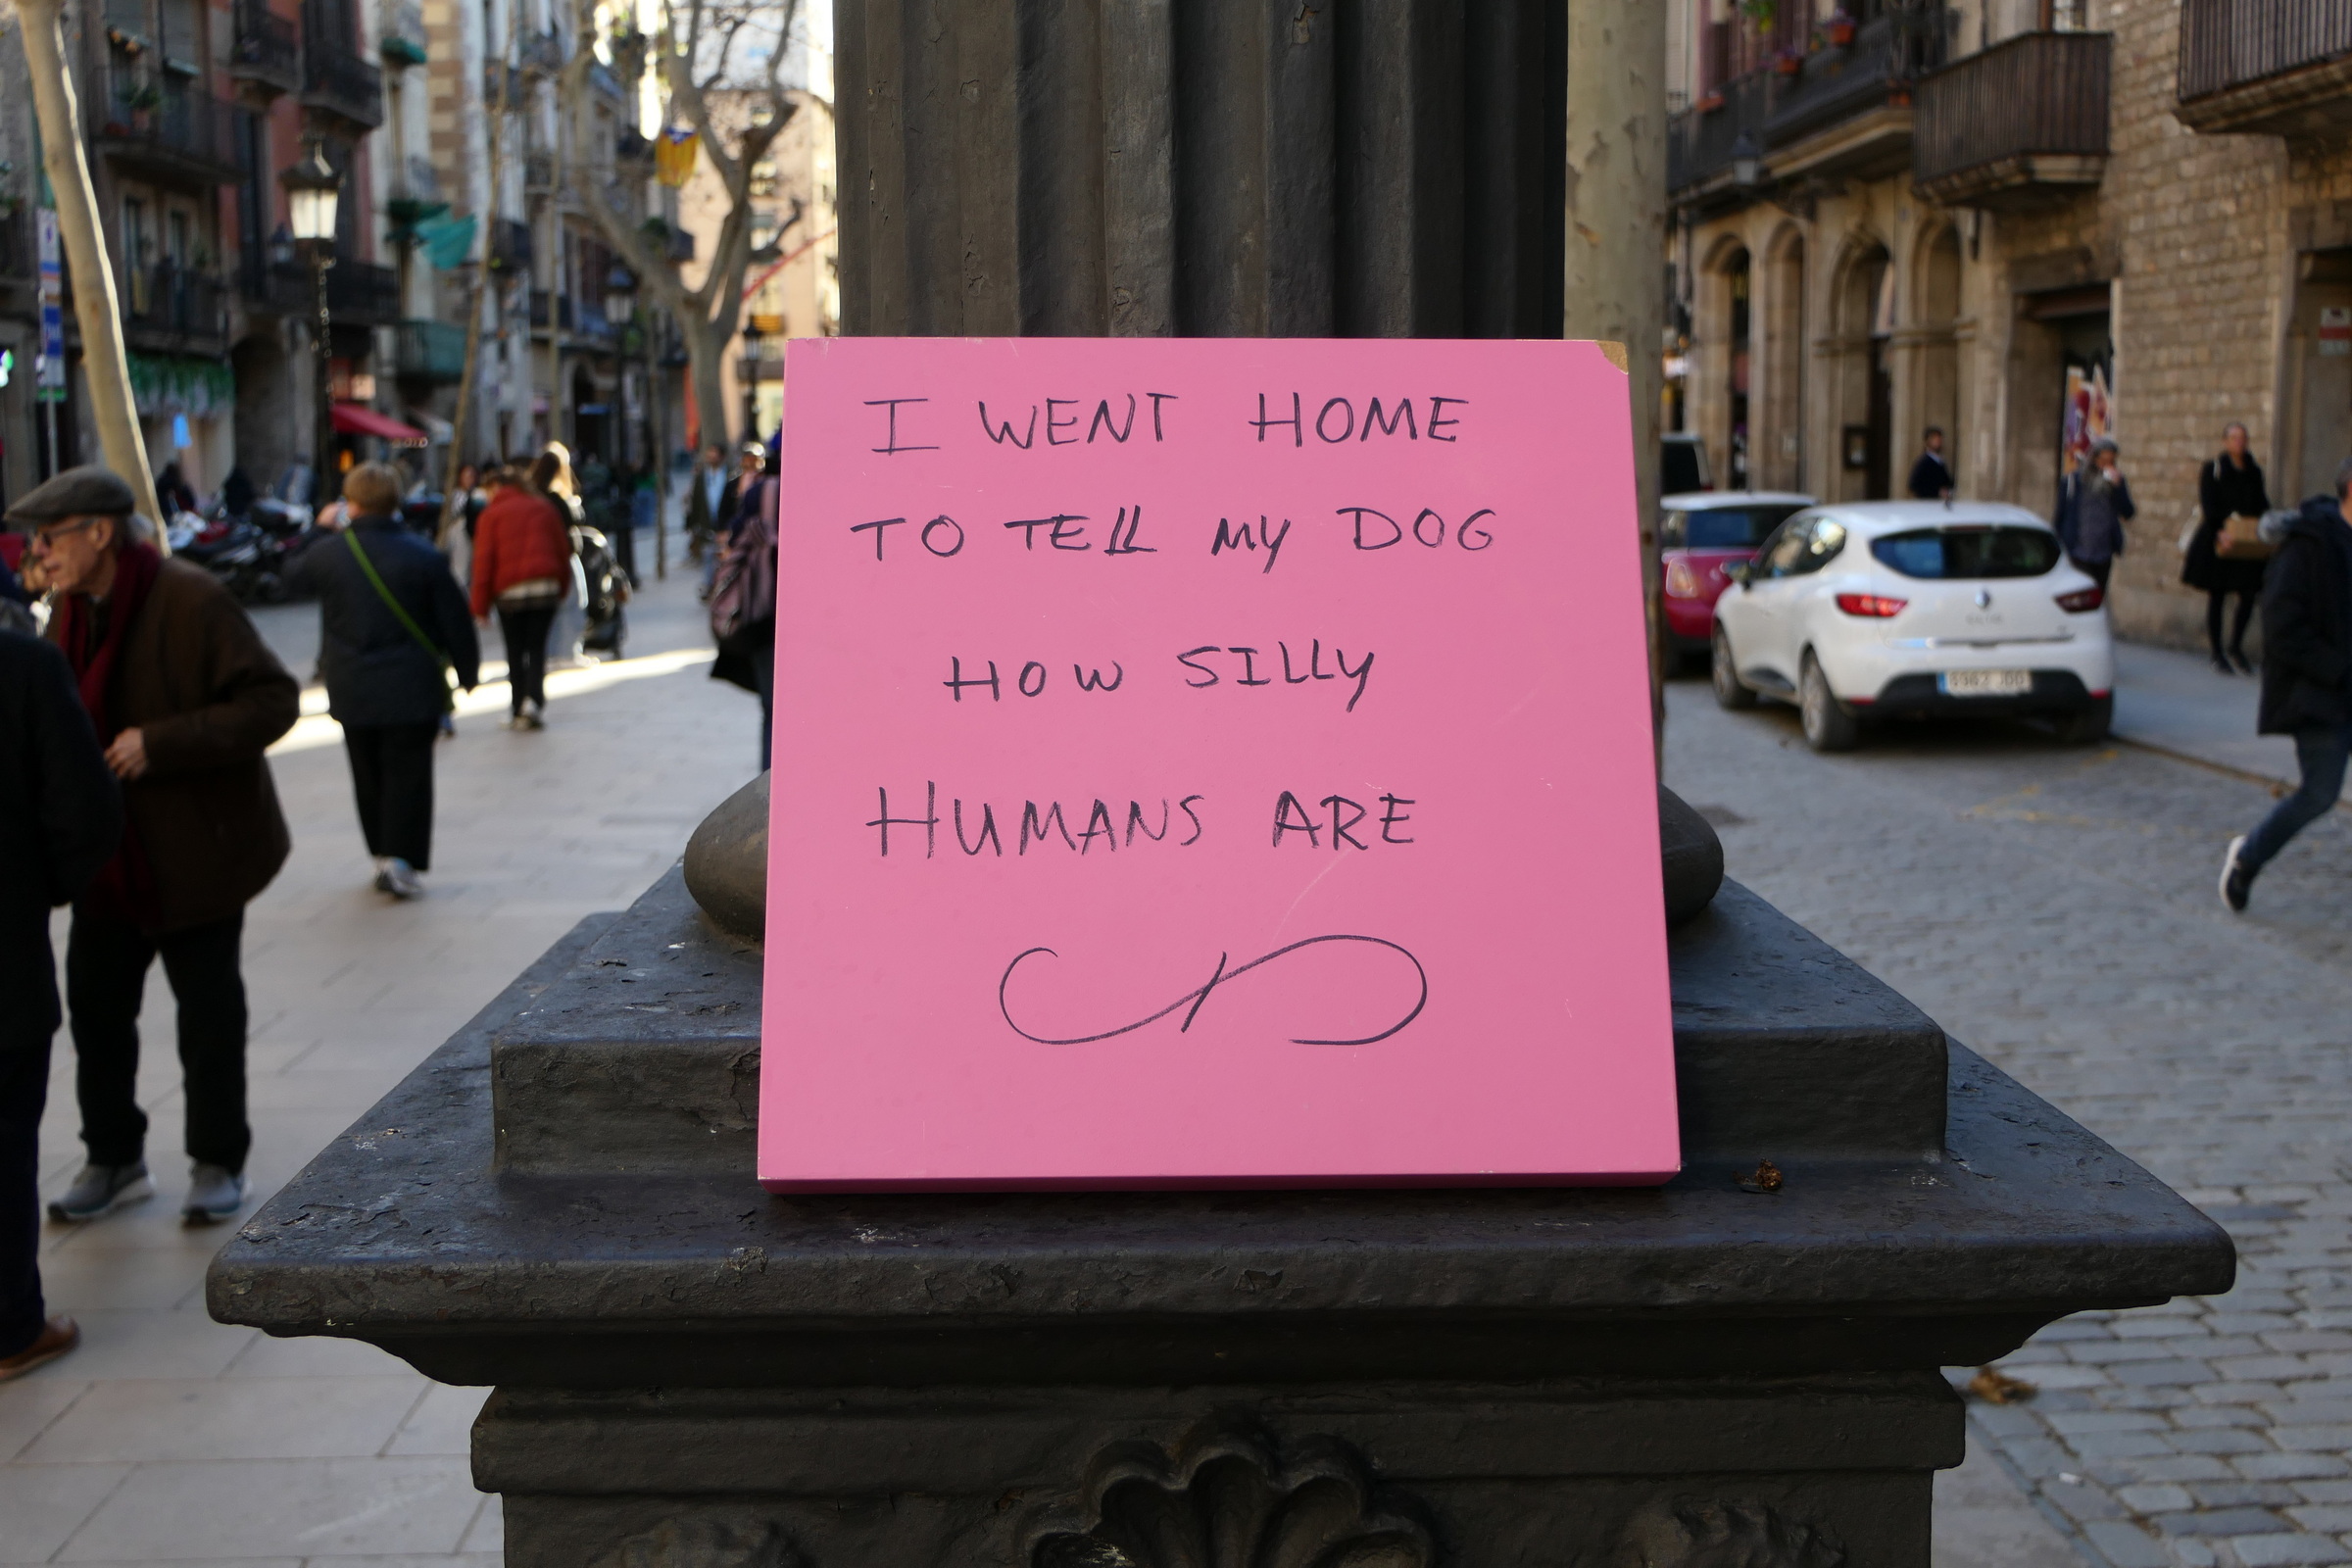 I WENT HOME
TO TELL MY DOG
HOW SILLY
HUMANS ARE